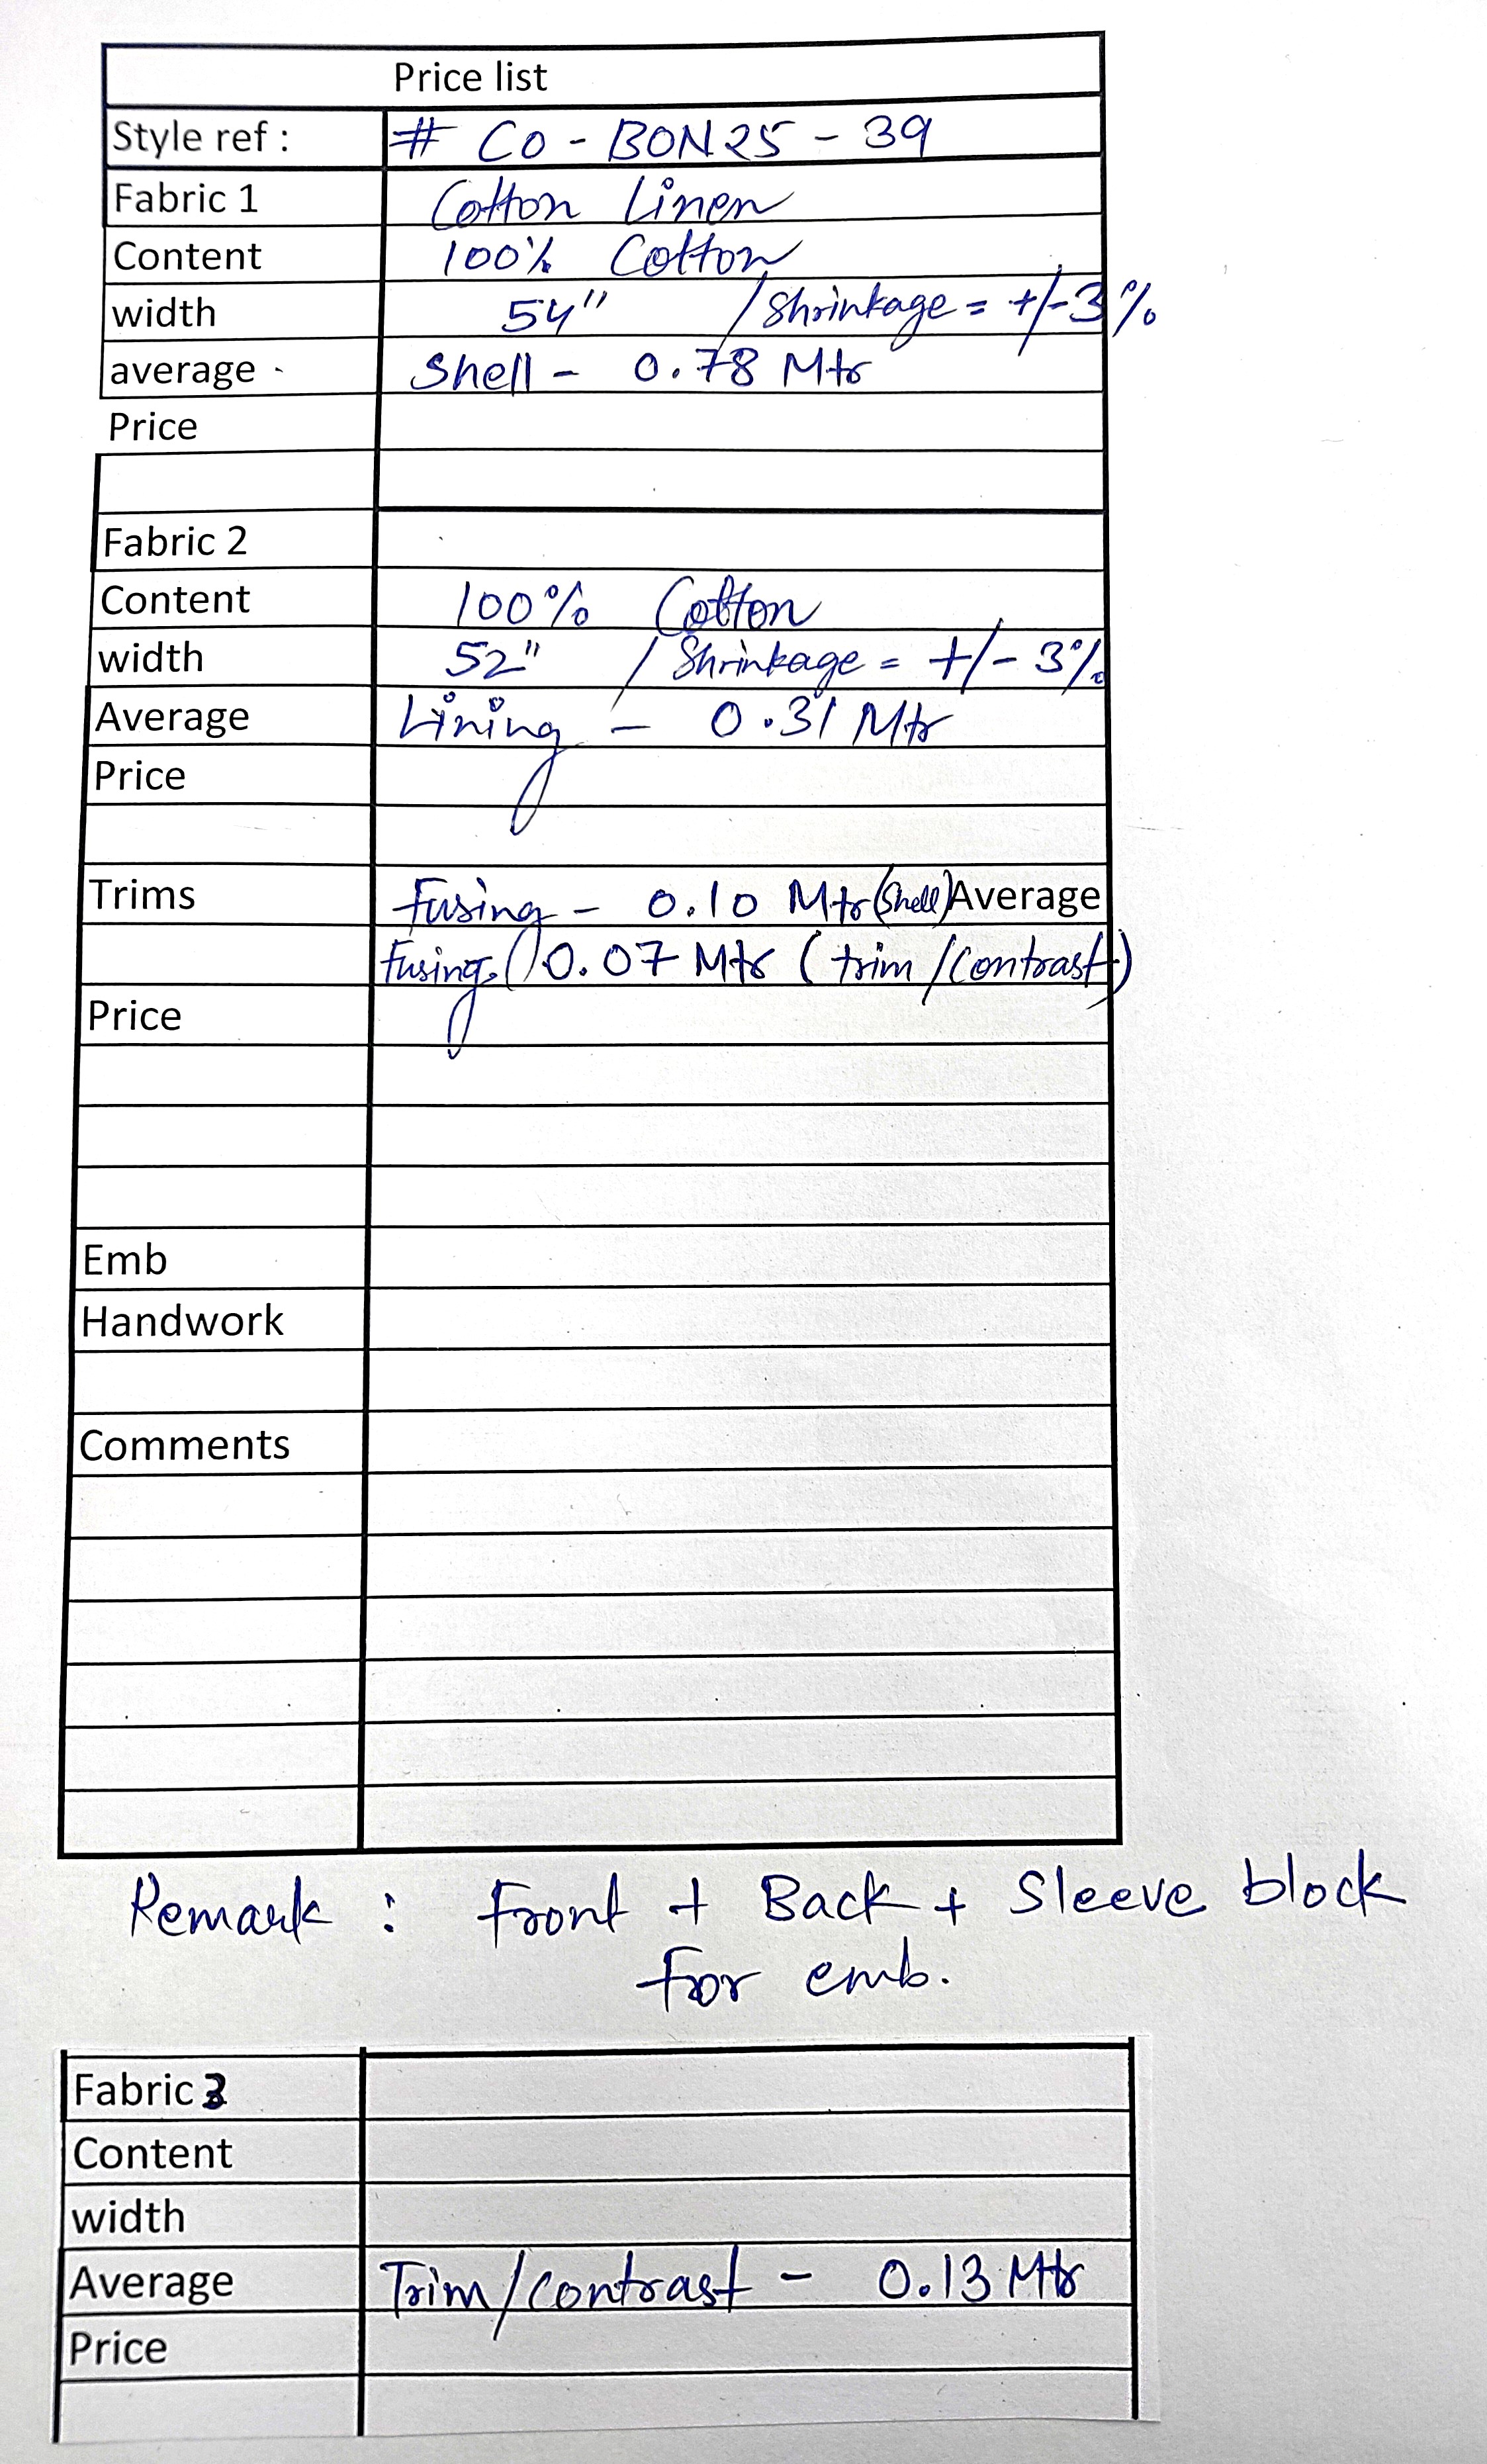 Price list
Style ref : # CO - BON25 - 39
Fabric 1 Cotton Linen
Content 100% Cotton
width 54" / Shrinkage = +/-3%
average Shell - 0.78 Mtr
Price
Fabric 2
Content 100% Cotton
width 52" / Shrinkage = +/- 3%
Average Lining - 0.31 Mtr
Price
Trims Fusing - 0.10 Mtr (Shell) Average
Fusing 0.07 Mtr (trim/contrast)
Price
Emb
Handwork
Comments
Remark : Front + Back + Sleeve block
for emb.
Fabric 3
Content
width
Average Trim/contrast - 0.13 Mtr
Price